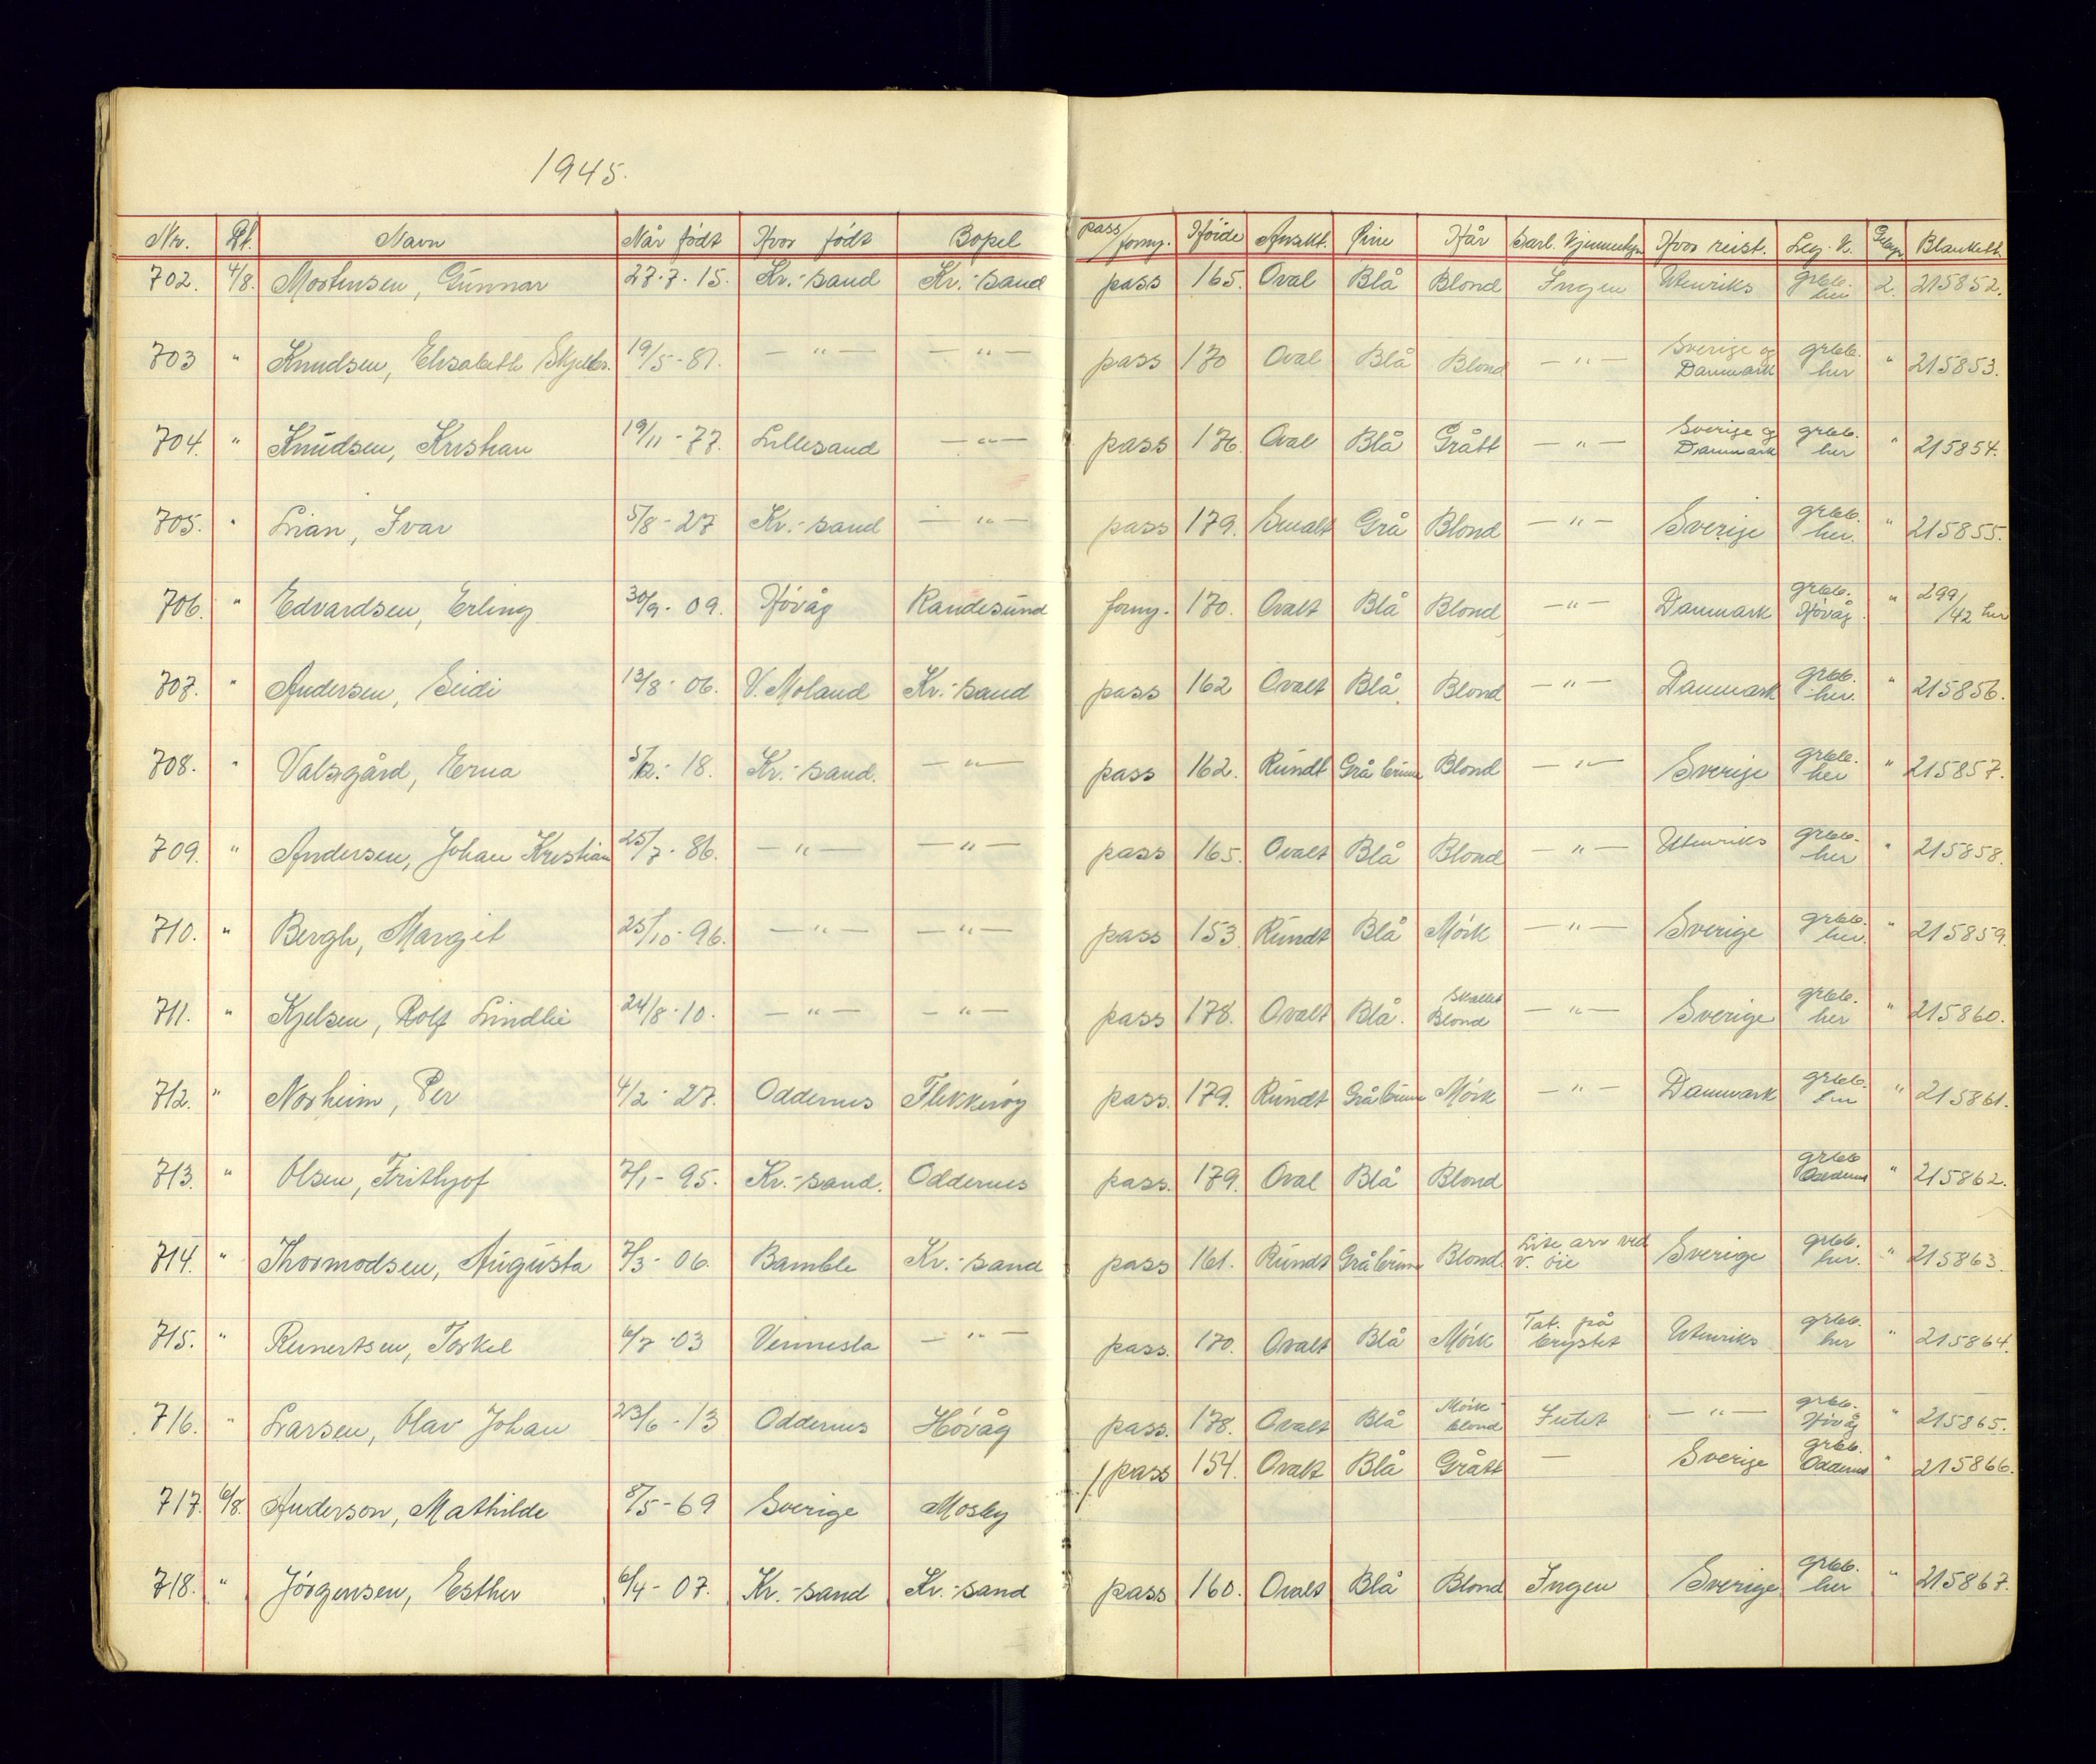 1945.
Nr. Dt. Navn Når født Hvor født Bopel pass/forny. Høide Ansikt. Øine Hår Særl. kjennetegn Hvor reist. Leg. k. Gebyr Blankett.
702. 4/8. Mortensen, Gunnar 27.7.15. Kr.-sand Kr.-sand pass 165. Oval Blå Blond Ingen Utenriks grbb. her 2. 215852.
703 " Knudsen, Elisabeth 19/5-81. —"— —"— pass 170 Oval Blå Blond —"— Sverige og Danmark grbb. her " 215853.
704. " Knudsen, Kristian 19/11-77. Lillesand —"— pass 176. Oval Blå Grått —"— Sverige og Danmark grbb. her " 215854.
705. " Lian, Ivar 5/8-27 Kr.-sand —"— pass 179. Smalt Grå Blond —"— Sverige grbb. her. " 215855.
706. " Edvardsen, Erling 30/9-09. Høvåg Randesund forny. 170. Ovalt Blå Blond —"— Danmark grbb. Høvåg " 299/42 her
707. " Andersen, Seidi 13/8-06. V. Moland Kr.-sand pass 162 Ovalt Blå. Blond —"— Danmark grbb. her. " 215856.
708. " Valsgård, Erna 5/12.-18. Kr.-sand. —"— pass 162. Rundt Grå brune Blond —"— Sverige grbb. her " 215857.
709. " Andersen, Johan Kristian 25/7-86. —"— —"— pass 165. Ovalt Blå Blond —"— Utenriks grbb. her " 215858.
710. " Bergh, Margit 25/10-96. —"— —"— pass 153. Rundt Blå Mørk —"— Sverige grbb. her. " 215859.
711. " Kjelsen, Rolf Lindlie 24/8-10. —"— —"— pass 178. Ovalt Blå. Skallet Blond —"— Sverige grbb. her " 215860.
712. " Norheim, Per 4/2-27. Oddernes Flekkerøy pass. 179. Rundt Grå brune Mørk —"— Danmark grbb. her " 215861.
713. " Olsen, Frithjof 7/1-95. Kr.-sand. Oddernes pass. 179. Oval Blå Blond grbb Oddernes " 215862.
714. " Thormodsen, Augusta 7/3-06. Bamble Kr.-sand pass 161. Rundt Grå brune Blond. Lite arr ved v. öie Sverige grbb. her. " 215863.
715. " Reinertsen, Torkel 6/7-03 Vennesla —"— pass. 170. Ovalt Blå Mørk Tat. på brystet Utenriks grbb. her " 215864.
716. " Larsen, Olav Johan 23/6-13 Oddernes Høvåg pass. 178. Ovalt Blå Mørk-blond Intet —"— grbb. Høvåg " 215865.
717. 6/8. Anderson, Mathilde 8/5-69 Sverige Mosby /. pass 154. Ovalt Blå Grått — Sverige grbb. Oddernes " 215866.
718. " Jørgensen, Esther 6/4-07. Kr.-sand Kr.-sand pass 160. Ovalt Blå Blond Ingen Sverige grbb. her " 215867.